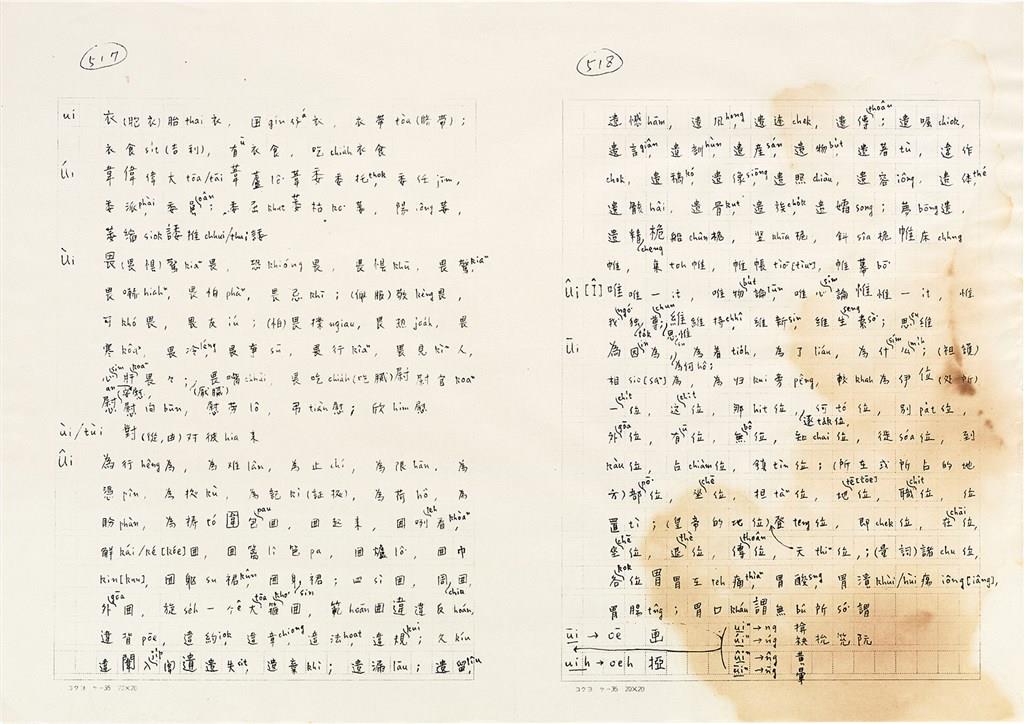 517
ui 衣(胞衣)胎thai衣, 囝gín仔á衣, 衣帶tòa(臍帶);
衣食si̍t(吉利), 有ū衣食, 吃chia̍h衣食
Úi 葦偉偉大tōa/tāi葦蘆lô͘葦委委托thok, 委任jīm,
委派phài, 委員oân; 委屈khut萎枯ko͘萎, 陽iông萎,
萎縮siok諉推chhui/thui諉
Ùi 畏(畏惧)驚kiaⁿ畏, 恐khióng畏, 畏惧khū, 畏驚kiaⁿ
畏嚇hiahⁿ, 畏怕phàⁿ, 畏忌khī; (佩服)敬kèng畏,
可khó畏, 畏友iú; (怕)畏擽ngiau, 畏熱joa̍h, 畏
寒kôaⁿ, 畏冷léng, 畏事sū, 畏行kiâⁿ, 畏見kìⁿ人,
心sim肝koaⁿ畏々; 畏嘴chhùi, 畏吃chia̍h(吃膩)慰慰官koaⁿ
慰安an慰問būn, 慰勞lô, 弔tiàu慰; 欣him慰
ùi/tùi 對(從,由)对彼hia來
Ûi 為行hêng為, 為难lân, 為止chí, 為限hān, 為
憑pîn, 為據kù, 為記kì(証據), 為荷hô, 為
盼phàn, 為禱tó圍包pau圍, 圍起來, 圍咧leh看khòaⁿ
解kái/ké[kóe]圍, 圍篱lî笆pa, 圍爐lô͘, 圍巾
kin[kun], 圍軀su裙kûn, 圍身sin裙; 四sì圍, 周chiu圍,
外gōa圍, 旋se̍h一個ê大tōa箍kho͘圍, 範hoān圍違違反hoán,
違背pōe, 違約iok, 違章chiong, 違法hoat違規kui; 久kiú
違闈入ji̍p闈遺遺失sit, 遺棄khì, 遺漏lāu; 遺留liû
コクヨ ケ-35 20×20
518
遺憾hām, 遺風hong, 遺迹chek, 遺傳thoân; 遺囑chiok,
遺言giân, 遺訓hùn, 遺産sán, 遺物bu̍t, 遺著tù, 遺作
chok, 遺稿kó, 遺像siōng, 遺照chiàu, 遺容iông, 遺体thé
遺骸hâi, 遺骨kut, 遺族cho̍k, 遺孀song; 夢bōng遺,
遺精cheng桅船chûn桅, 竪khiā桅, 斜siâ桅帷床chhng
帷, 桌toh帷, 帷帳tiòⁿ[tiùⁿ], 帷幕bō͘
Ûi[Î] 唯唯一it, 唯物bu̍t論lūn, 唯心sim論惟惟一it, 惟
我ngó͘独to̍k尊chun; 思惟維維持chhî, 維新sin, 維生seng素sò͘; 思su維
Ūi 為因in為, 為着tio̍h, 為了liáu, 為什sím么mi̍h; 為何hô; (袒護)
相sio[saⁿ]為, 為归kui旁pêng, 較khah為伊位(処所)
一chi̍t位, 這chit位, 那hit位, 何tó位, 逐ta̍k位, 別pa̍t位,
外gōa位, 有ū位, 無bô位, 知chai位, 徙sóa位, 到
kàu位, 占chiàm位, 鎮tìn位; (所在或所占的地
方)部pō͘位, 坐chē位, 担tàⁿ位, 地tē[tōe]位, 職chit位, 位
置tì; (皇帝的地位)登teng位, 即chek位, 在chāi位,
坐chē位, 退thè位, 傳thoân位, 天thiⁿ位; (量詞)諸chu位,
各kok位胃胃子teh痛thiàⁿ, 胃酸sng胃潰khùi/hùi瘍iông[iâng],
胃腸tn̂g; 胃口kháu謂無bû所só͘謂
ūi → oē 画
uih → oeh 挜
uiⁿ → ng
úiⁿ → ńg 阮
ûiⁿ → n̂g 黄
ūiⁿ → n̄g 暈
コクヨ ケ-35 20×20